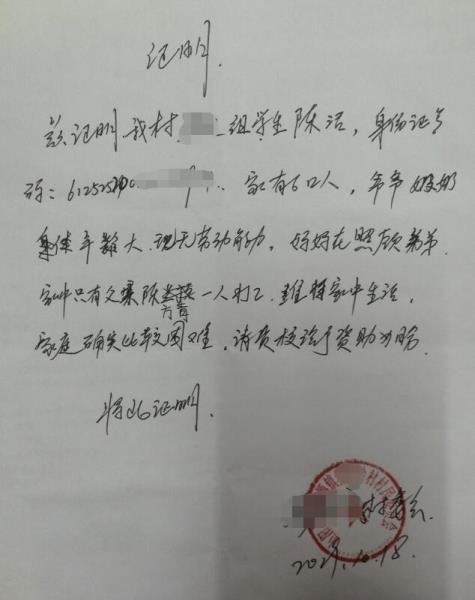 证明
兹证明我村 组学生陈洁，身份证号
码：612525 家有6口人，爷爷奶奶
身体年龄大、现无劳动能力，妈妈在照顾弟弟，
家中只有父亲陈 一人打工 维持家中生活，
家庭确实比较困难，请贵校给予资助为盼。
特此证明。
村委会
10.18